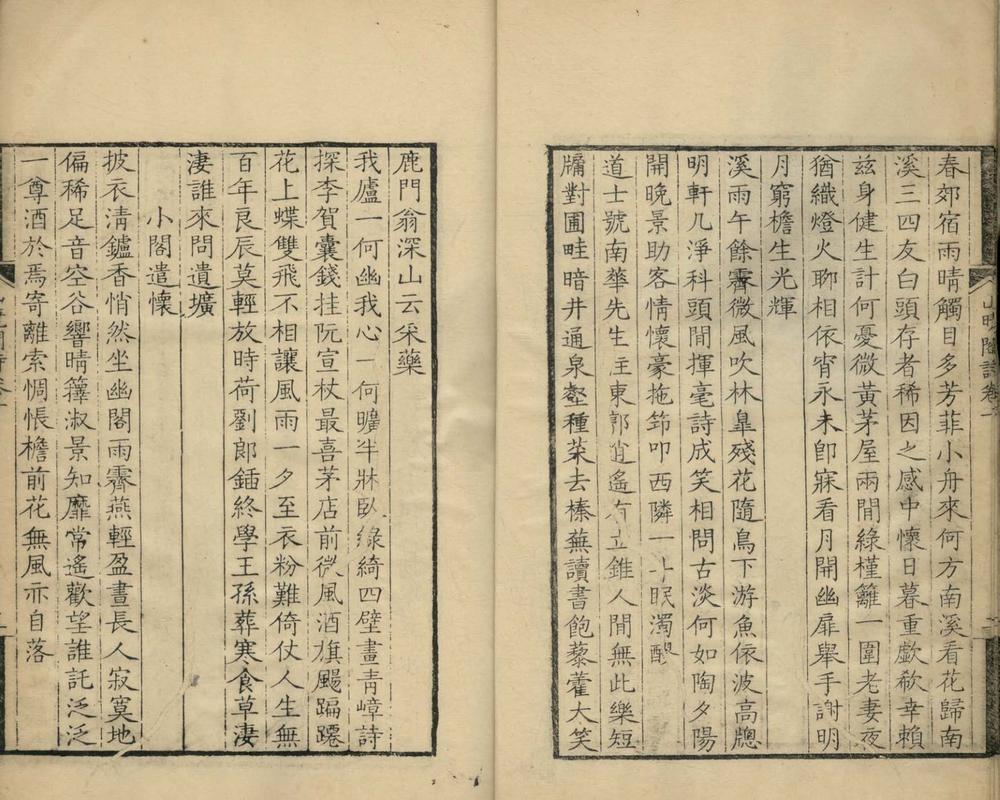 春郊宿雨晴觸目多芳菲小舟來何方南溪看花歸南
溪三四友白頭存者稀因之感中懷日暮重歔欷幸賴
兹身健生計何憂微黃茅屋兩間綠槿籬一圍老妻夜
猶織燈火聊相依宵永未卽寐看月開幽扉舉手謝明
月窮檐生光輝
溪雨午餘霽微風吹林臯殘花隨鳥下游魚依波高牕
明軒几淨科頭閒揮毫詩成笑相問古淡何如陶夕陽
開晚景助客情懷豪拖筇叩西隣一 眠濁醪
道士號南華先生主東郭逍遙有立錐人閒無此樂短
牗對圃畦暗井通泉壑種菜去榛蕪讀書飽藜藿大笑
鹿門翁深山云采藥
我廬一何幽我心一何曠半牀臥綠綺四壁畫靑嶂詩
探李賀囊錢挂阮宣杖最喜茅店前微風酒旗颺蹁躚
花上蝶雙飛不相讓風雨一夕至衣粉難倚仗人生無
百年良辰莫輕放時荷劉郎鍤終學王孫葬寒食草淒
淒誰來問遺壙
小閣遣懷
披衣淸鑪香悄然坐幽閣雨霽燕輕盈晝長人寂寞地
偏稀足音空谷響晴籜淑景知靡常遙歡望誰託泛泛
一尊酒於焉寄離索惆悵檐前花無風亦自落